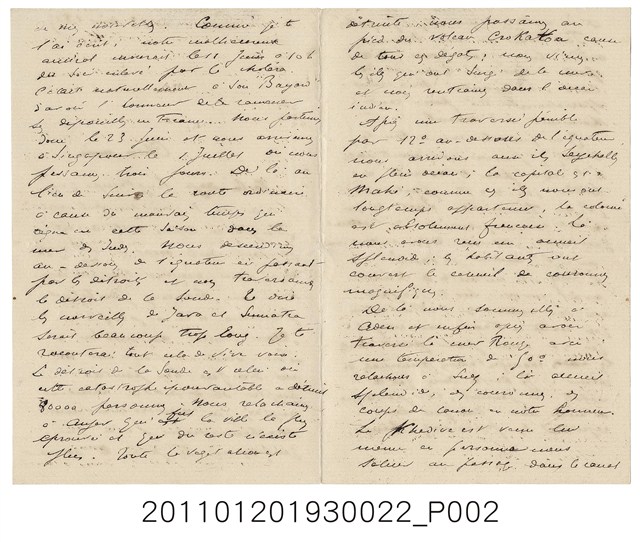 Comme je te
l'ai écrit, notre malheureux
amiral mourait le 11 Juin à 10h
du soir enlevé par le choléra
c'était naturellement à son Bayard
l'honneur de le ramener
sa dépouille en France. Nous partions
Donc le 23 Juin et nous arrivions
à Singapour le 1 Juillet où nous
passâmes trois jours. De là au
lieu de suivre la route ordinaire
à cause du mauvais temps qui
règne en cette saison dans la
mer des Indes. Nous descendîmes
au-dessous de l'équateur en passant
par les détroits et nous traversâmes
le détroit de la Sonde. Te dire
les merveilles de Java et Sumatra
serait beaucoup trop long. Je te
raconterai tout cela de vive voix.
Le détroit de la Sonde est celui où
cette catastrophe épouvantable a détruit
80000 personnes. Nous relachâmes
à Anjer qui fut la ville la plus
éprouvée et qui du reste n'existe
plus. Toute la végétation est
détruite. Nous passâmes au
pied du volcan Krokatoa cause
de tous ces dégats; nous vîmes
les îles qui ont surgi de la mer
et nous rentrâmes dans l'océan
indien.
Après une traversée pénible
par 12° au-dessous de l'équateur
nous arrivons aux îles Seychelles
en plein océan; la capitale est
Mahé; comme ces îles nous ont
longtemps appartenu, la colonie
est absolument française. Là
nous avons reçu un accueil
splendide; les habitants ont
couvert le cercueil de couronnes
magnifiques.
De là nous sommes allés à
Aden et enfin après avoir
traversé la mer Rouge avec
une température de 50° nous
relachons à Suez; là accueil
splendide, des couronnes, des
coups de canon en notre honneur.
Le Khédive est venu lui
même en personne nous
saluer au passage dans le canal
201101201930022_P002